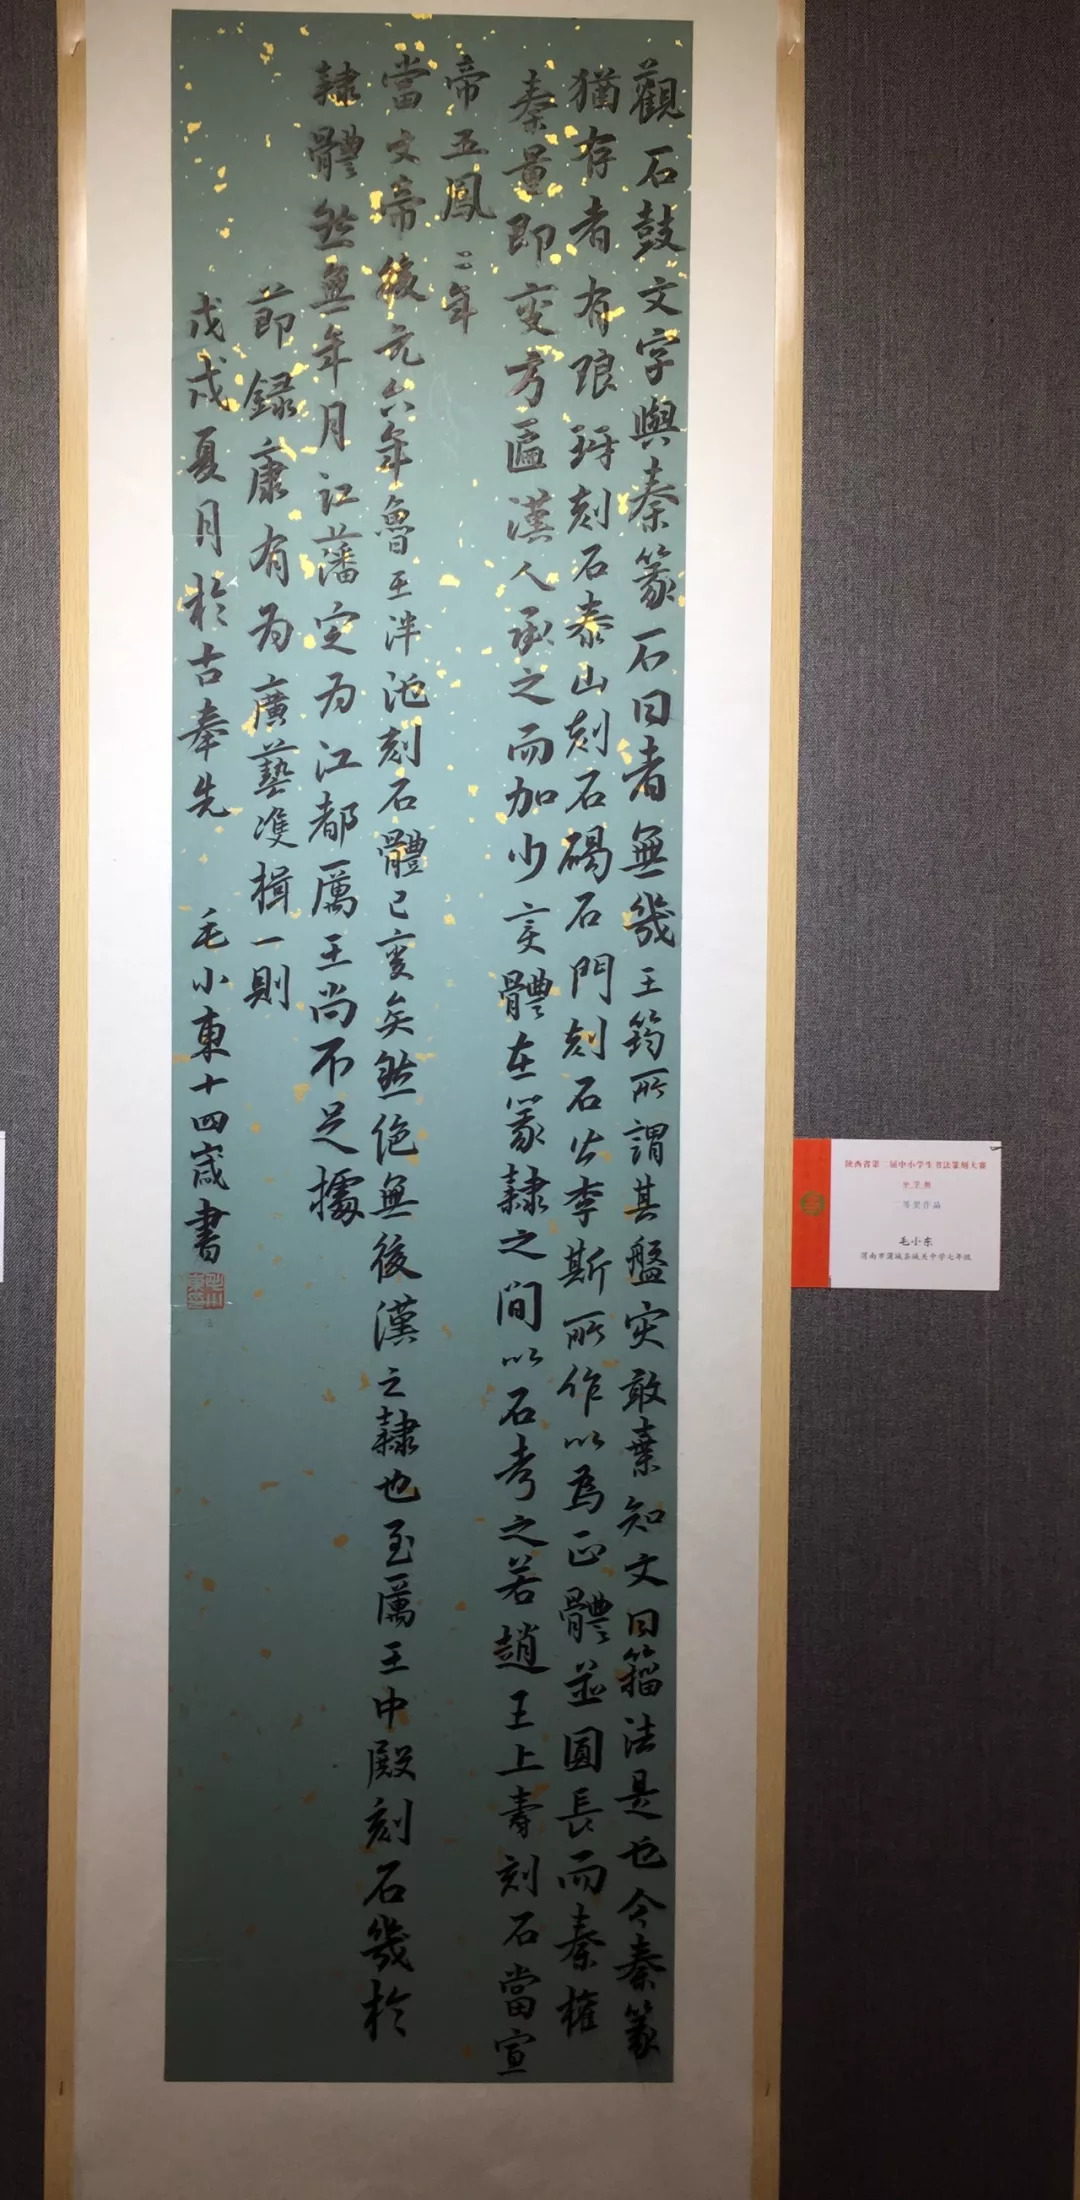 觀石鼓文字與秦篆石曰者無幾王筠所謂其盤突敢棄知文曰籀法是也今秦篆
猶存者有琅玡刻石泰山刻石碣石門刻石皆李斯所作以為正體並圓長而秦權
秦量即變方匾漢人承之而加少変體在篆隸之間以石考之若趙王上壽刻石當宣
帝五鳳二年
當文帝後元六年魯王泮池刻石體已變矣然絶無後漢之隸也至厲王中殿刻石幾於
隸體然無年月江藩定為江都厲王尚不足據
節録康有为廣藝雙楫一則
戊戌夏月於古奉先 毛小東十四歲書
陕西省第二届中小学生书法篆刻大赛
中学组
二等奖作品
毛小东
渭南市蒲城县城关中学七年级